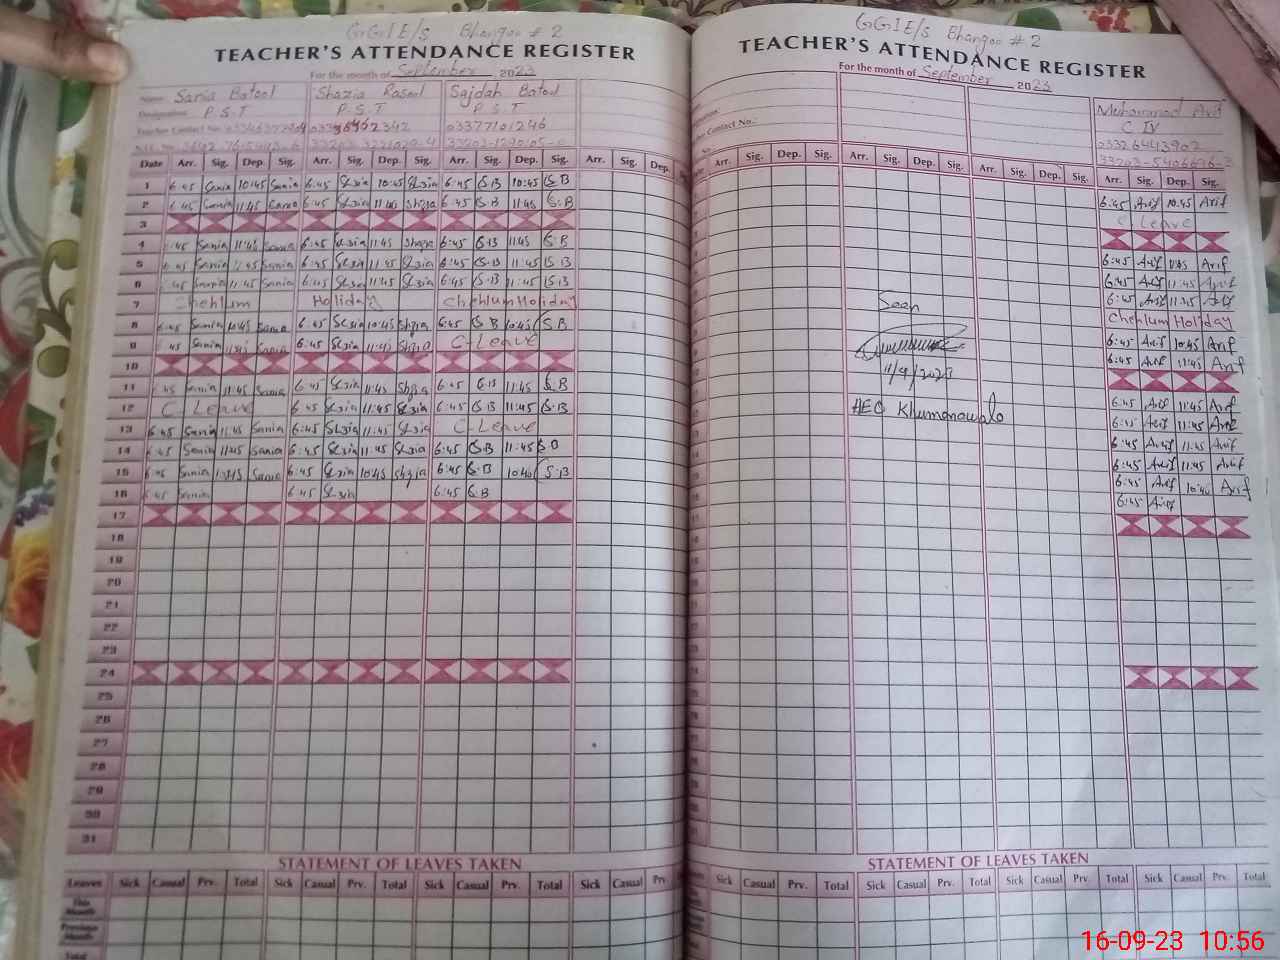 GGIE/S Bhangoo # 2
TEACHER'S ATTENDANCE REGISTER
For the month of September 2023
Name Sania Batool Shazia Rasool Sajdah Batool
Designation P.S.T P.S.T P.S.T
Teacher Contact No. 2342 03377101246
Date Arr. Sig. Dep. Sig. Arr. Sig. Dep. Sig. Arr. Sig. Dep. Sig. Arr. Sig. Dep.
1 6:45 Sania 10:45 Sania 6:45 10:45 6:45 S.B 10:45 S.B
2 6:45 Sania 11:45 Sania 6:45 Shzia 6:45 S.B 11:45 S.B
3
4 :45 Sania 11:45 Sania 6:45 11:45 6:45 S.B 11:45 S.B
5 6:45 Sania 11:45 Sania 6:45 11:45 6:45 S.B 11:45 S.B
6 6:45 Sania 11:45 Sania 6:45 11:45 6:45 S.B 11:45 S.B
7 Chehlum Holiday Chehlum Holiday
8 6:45 Sania 10:45 Sania 6:45 10:45 Shzia 6:45 S.B 10:45 S.B
9 6:45 Sania 11:45 Sania 6:45 11:45 Shzia C-Leave
10
11 6:45 Sania 11:45 Sania 6:45 11:45 Shzia 6:45 S.B 11:45 S.B
12 C-Leave 6:45 11:45 6:45 S.B 11:45 S.B
13 6:45 Sania 11:45 Sania 6:45 11:45 C-Leave
14 6:45 Sania 11:45 Sania 6:45 11:45 6:45 S.B 11:45 S.B
15 6:45 Sania Sania 6:45 10:45 Shzia 6:45 S.B 10:40 S.B
16 6:45 Sania 6:45 6:45 S.B
17
18
19
20
21
22
23
24
25
26
27
28
29
30
31
STATEMENT OF LEAVES TAKEN
Leaves Sick Casual Prv. Total Sick Casual Prv. Total Sick Casual Prv. Total Sick Casual Prv.
This Month
Previous Month
Total
GGIE/S Bhangoo # 2
TEACHER'S ATTENDANCE REGISTER
For the month of September 2023
Muhammad Arif
C IV
Contact No.: 03326443902
Arr. Sig. Dep. Sig. Arr. Sig. Dep. Sig. Arr. Sig. Dep. Sig. Arr. Sig. Dep. Sig.
6:45 Arif 10:45 Arif
C Leave
6:45 Arif Arif
6:45 Arif 11:45 Arif
6:45 Arif 11:45 Arif
Seen
Chehlum Holiday
6:45 Arif 10:45 Arif
6:45 Arif 11:45 Arif
11/9/2023
AEO Khumanawala
6:45 Arif 11:45 Arif
6:45 Arif 11:45 Arif
6:45 Arif 11:45 Arif
6:45 Arif 11:45 Arif
6:45 Arif 10:40 Arif
6:45 Arif
STATEMENT OF LEAVES TAKEN
Sick Casual Prv. Total Sick Casual Prv. Total Sick Casual Prv. Total Sick Casual Prv. Total
16-09-23 10:56